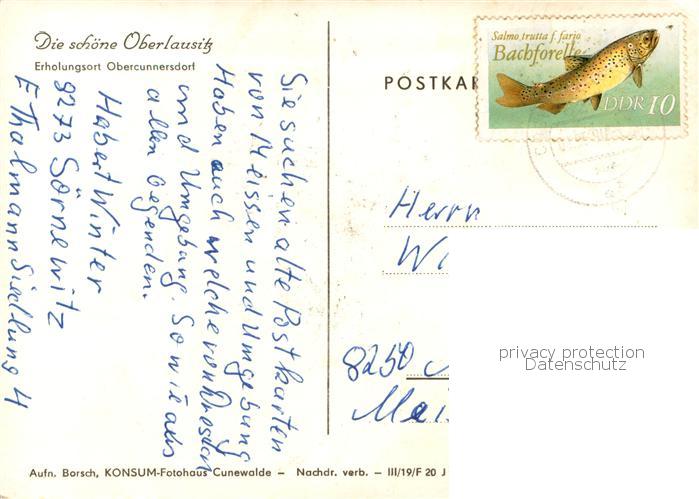 Die schöne Oberlausitz
Erholungsort Obercunnersdorf
Sie suchen alte Postkarten
von Meissen und Umgebung
Haben auch welche von Dresden
und Umgebung. Sowie aus
allen Gegenden.
Winter
8273 Sörnewitz
E Thalmann Siedlung 4
POSTKAR
Salmo trutta f. fario
Bachforelle
DDR 10
Herrn
Wi
8250
Mei
privacy protection
Datenschutz
Aufn. Borsch, KONSUM-Fotohaus Cunewalde – Nachdr. verb. – III/19/F 20 J